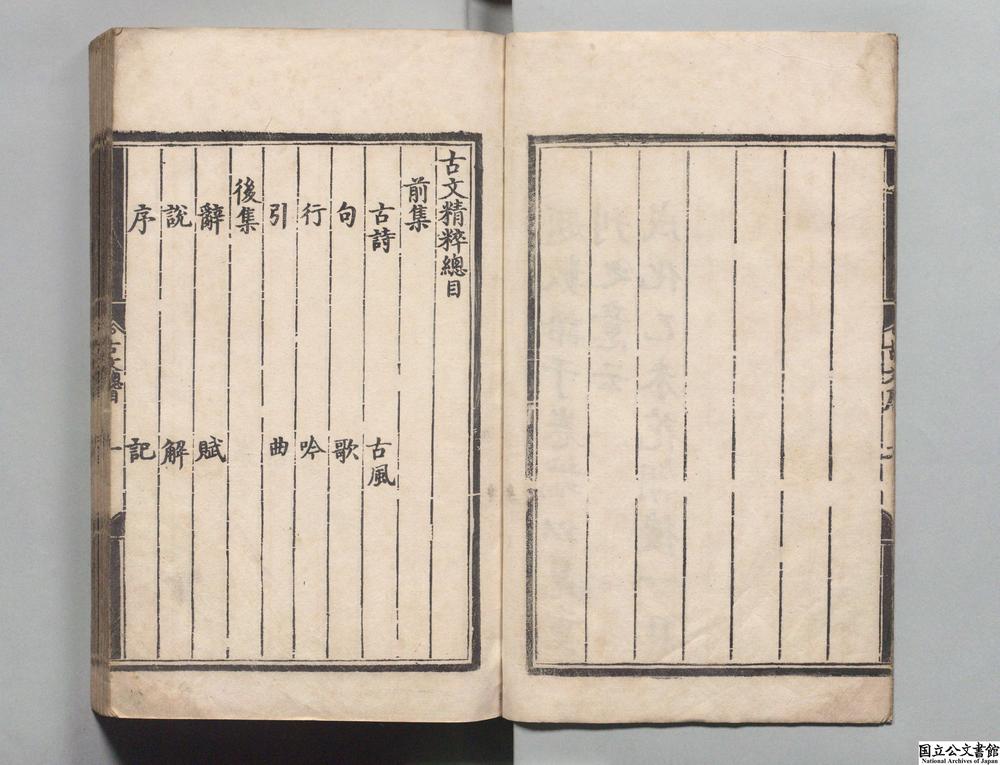 古文精粹總目
前集
古詩 古風
句 歌
行 吟
引 曲
後集
辭 賦
說 解
序 記
古文總目 一
国立公文書館
National Archives of Japan